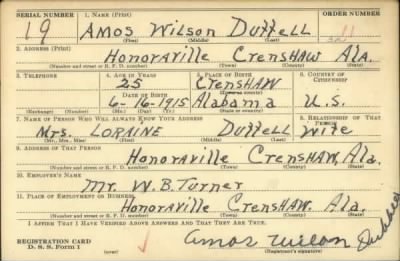 SERIAL NUMBER 1. NAME (Print) ORDER NUMBER
19 AMOS Wilson Duffell
(First) (Middle) (Last)
2. ADDRESS (Print)
Honoraville Crenshaw Ala.
(Number and street or R. F. D. number) (Town) (County) (State)
3. TELEPHONE 4. AGE IN YEARS 5. PLACE OF BIRTH 6. COUNTRY OF CITIZENSHIP
25 Crenshaw
DATE OF BIRTH
6-16-1915 Alabama U.S.
(Exchange) (Number) (Mo.) (Day) (Yr.) (State or country)
7. NAME OF PERSON WHO WILL ALWAYS KNOW YOUR ADDRESS 8. RELATIONSHIP OF THAT PERSON
Mrs. LORAINE Duffell Wife
(Mr., Mrs., Miss) (First) (Middle) (Last)
9. ADDRESS OF THAT PERSON
Honoraville Crenshaw, Ala.
(Number and street or R. F. D. number) (Town) (County) (State)
10. EMPLOYER'S NAME
Mr. W. B. Turner
11. PLACE OF EMPLOYMENT OR BUSINESS
Honoraville Crenshaw. Ala.
(Number and street or R. F. D. number) (Town) (County) (State)
I AFFIRM THAT I HAVE VERIFIED ABOVE ANSWERS AND THAT THEY ARE TRUE.
REGISTRATION CARD
D. S. S. Form 1
Amos Wilson